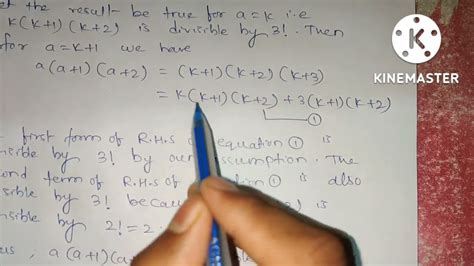 the result be true for a=k i.e
k(k+1)(k+2) is divisible by 3! . Then
for a=k+1 we have
a(a+1)(a+2) = (k+1)(k+2)(k+3)
= k(k+1)(k+2) + 3(k+1)(k+2)
①
first form of R.H.S of equation ① is
by 3! by our assumption. The
term of R.H.S of ① is also
by 3!
by 2! = 2
a(a+1)
KINEMASTER